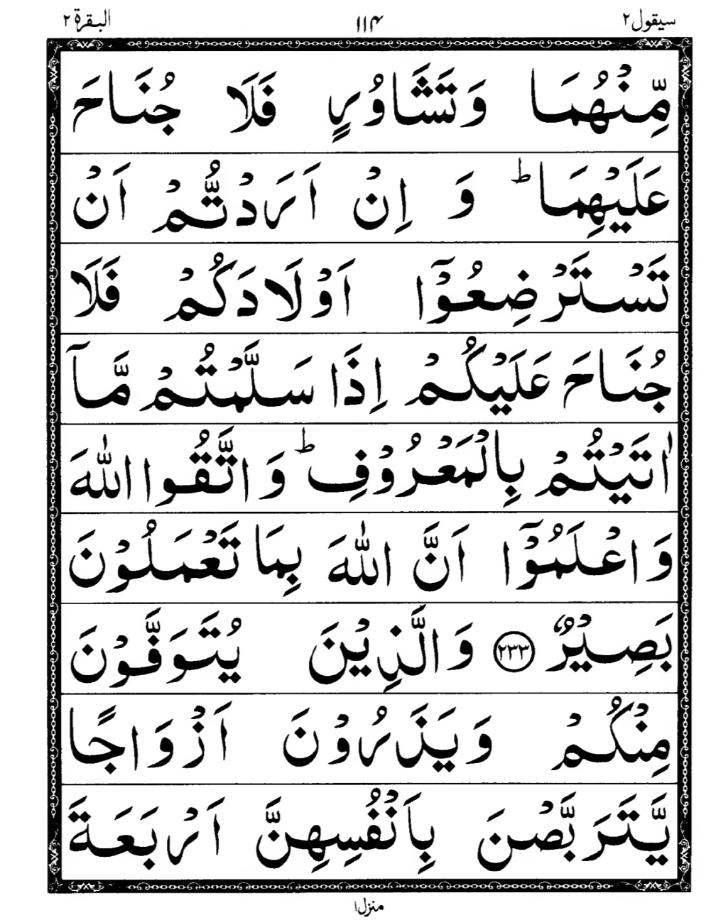 سيقول ٢ ١١٤ البقرة ٢
مِّنْهُمَا وَتَشَاوُرٍ فَلَا جُنَاحَ
عَلَيْهِمَا ؕ وَ اِنْ اَرَدْتُّمْ اَنْ
تَسْتَرْضِعُوْۤا اَوْلَادَكُمْ فَلَا
جُنَاحَ عَلَيْكُمْ اِذَا سَلَّمْتُمْ مَّاۤ
اٰتَيْتُمْ بِالْمَعْرُوْفِ ؕ وَاتَّقُوا اللّٰهَ
وَاعْلَمُوْۤا اَنَّ اللّٰهَ بِمَا تَعْمَلُوْنَ
بَصِيْرٌ ﴿٢٣٣﴾ وَالَّذِيْنَ يُتَوَفَّوْنَ
مِنْكُمْ وَيَذَرُوْنَ اَزْوَاجًا
يَّتَرَبَّصْنَ بِاَنْفُسِهِنَّ اَرْبَعَةَ
منزل ١